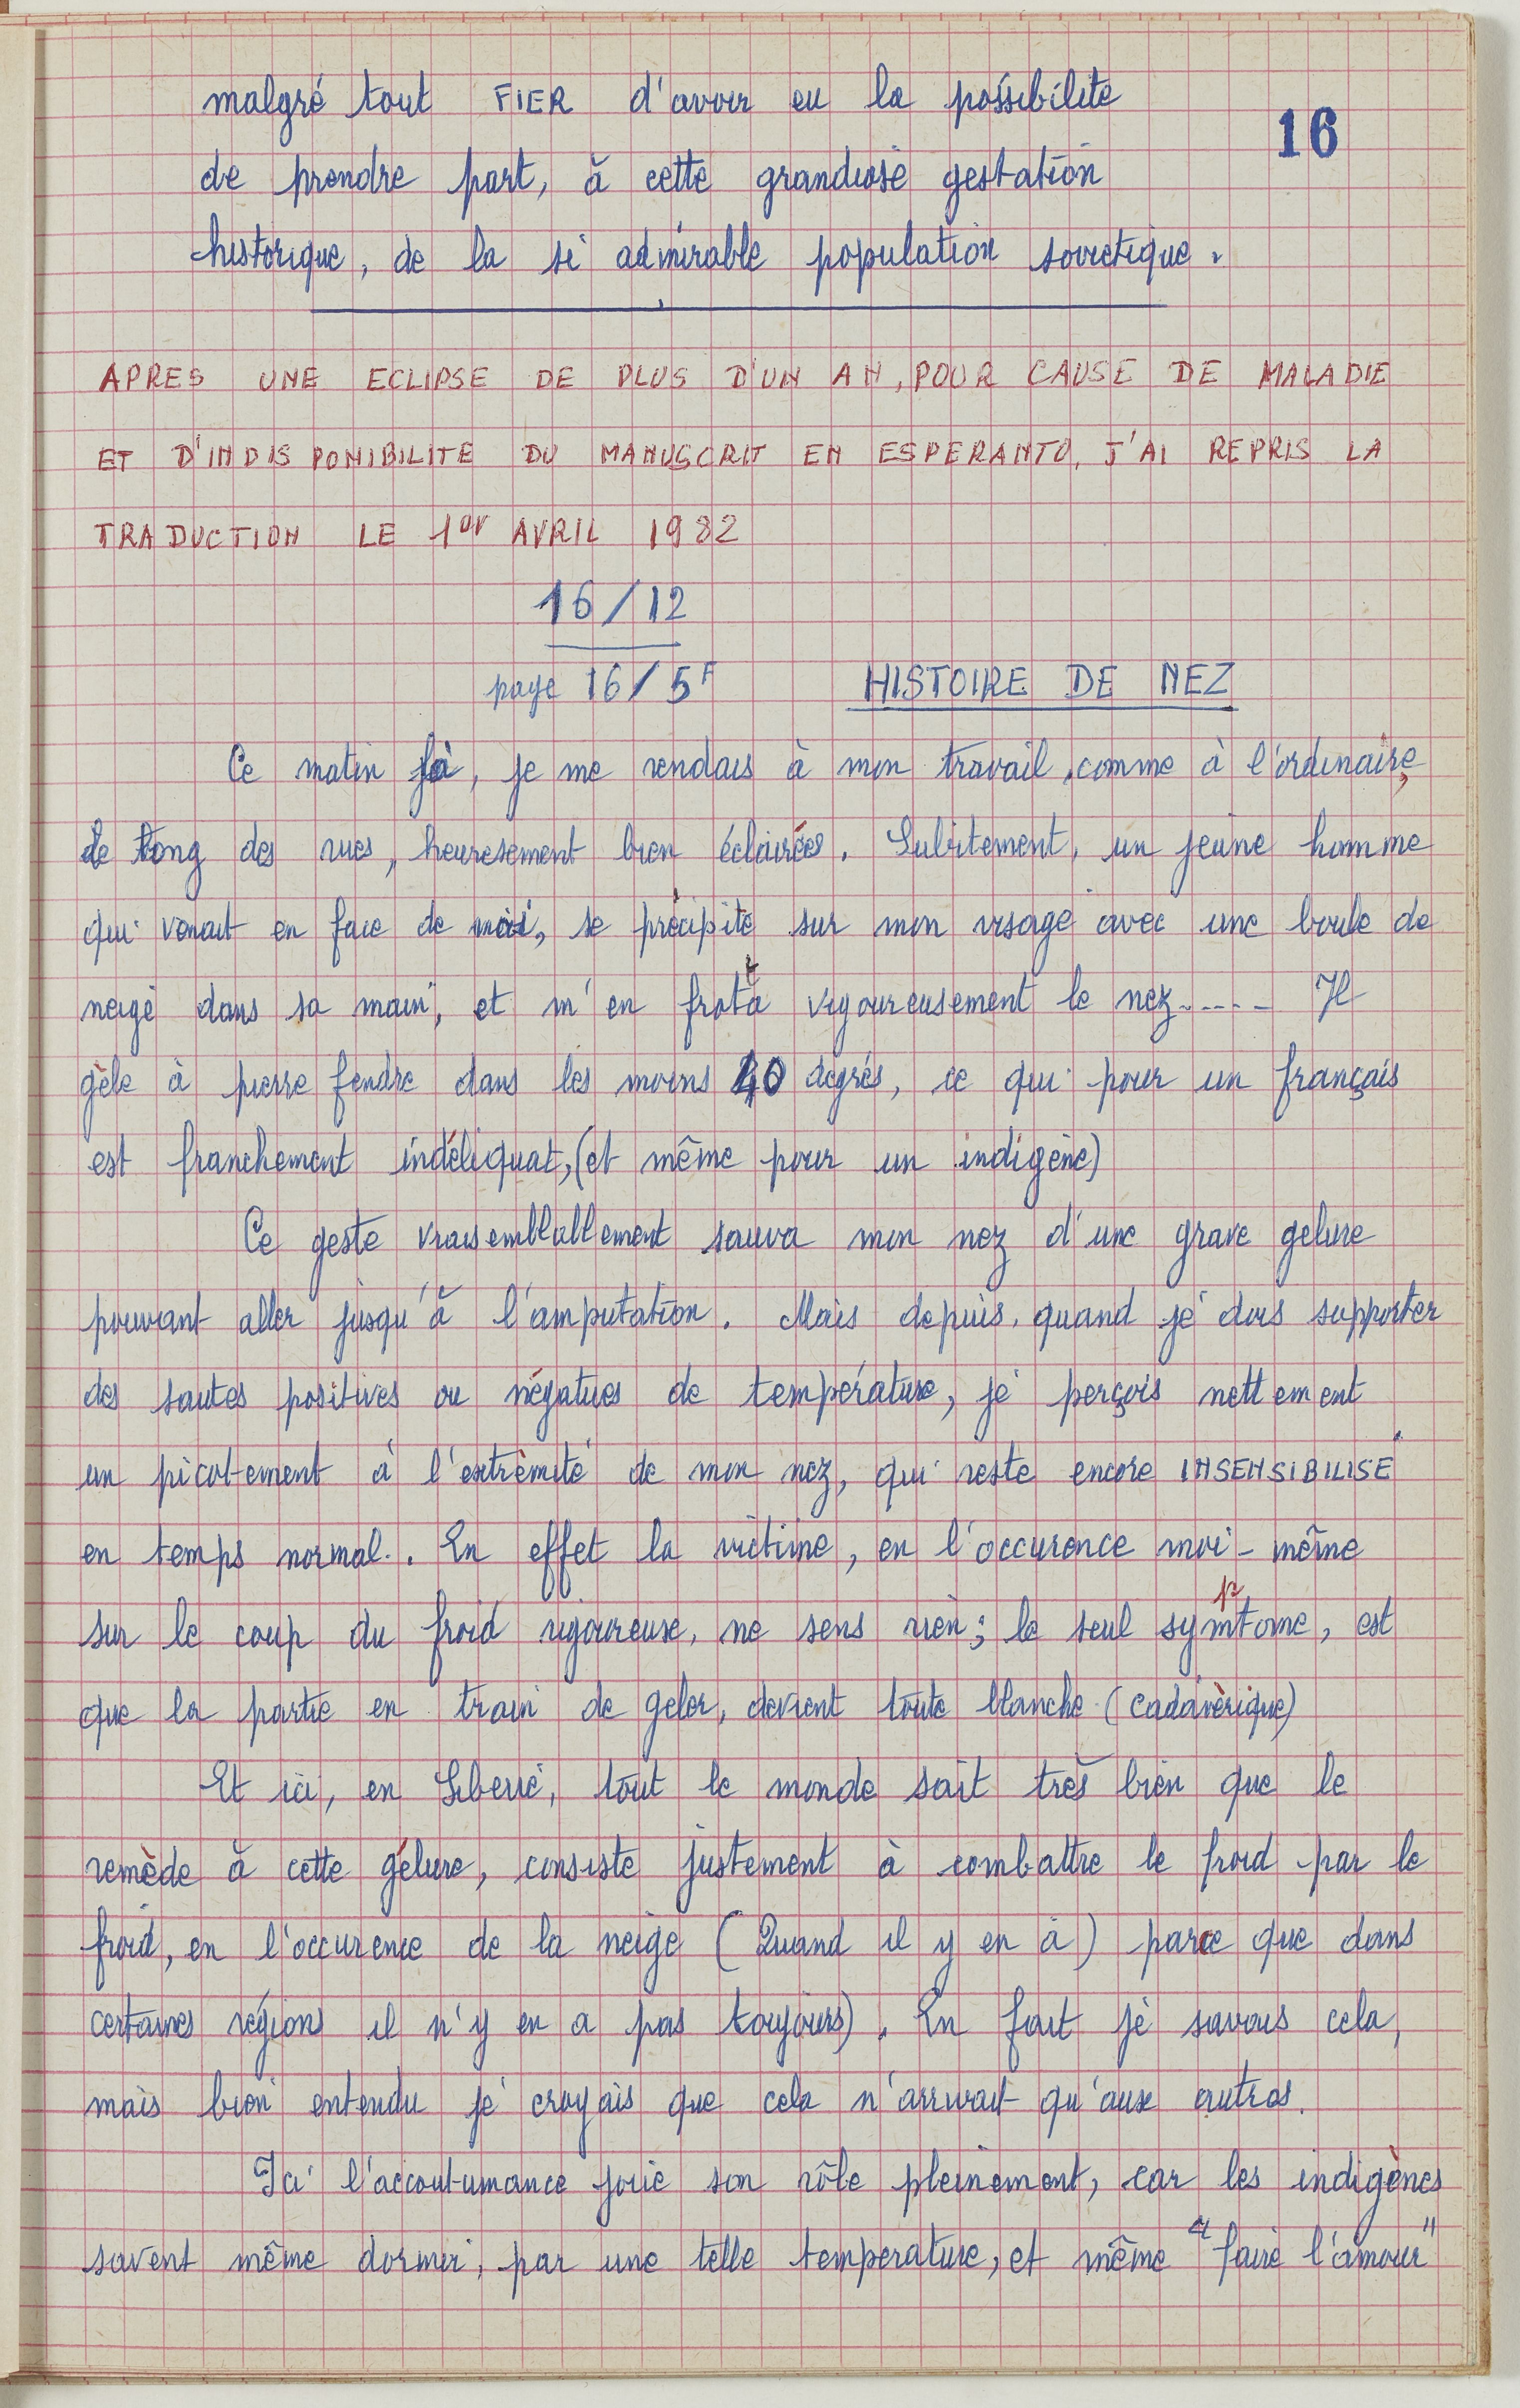 malgré tout FIER d'avoir eu la possibilité
16
de prendre part, à cette grandiose gestation
historique, de la si admirable population sovietique.
APRES UNE ECLIPSE DE PLUS D'UN AN, POUR CAUSE DE MALADIE
ET D'INDISPONIBILITE DU MANUSCRIT EN ESPERANTO, J'AI REPRIS LA
TRADUCTION LE 1er AVRIL 1982
16/12
page 16/5F HISTOIRE DE NEZ
Ce matin là, je me rendais à mon travail, comme à l'ordinaire,
le long des rues, heuresement bien éclairées. Subitement, un jeune homme
qui venait en face de moi, se précipite sur mon visage avec une boule de
neige dans sa main, et m'en frotta vigoureusement le nez..... Il
gèle à pierre fendre dans les moins 40 degrés, ce qui pour un français
est franchement indéliquat, (et même pour un indigène)
Ce geste vraisemblablement sauva mon nez d'une grave gelure
pouvant aller jusqu'à l'amputation. Mais depuis, quand je dois supporter
des sautes positives ou négatives de température, je perçois nettement
un picotement à l'extrèmité de mon nez, qui reste encore INSENSIBILISÉ
en temps normal. . En effet la victime, en l'occurence moi-même
sur le coup du froid rigoureuse, ne sens rien; le seul symptome, est
que la partie en train de geler, devient toute blanche (cadavèrique)
Et ici, en Siberie, tout le monde sait très bien que le
remède à cette gélure, consiste justement à combattre le froid par le
froid, en l'occurence de la neige (Quand il y en à) parce que dans
certaines régions il n'y en a pas toujours). En fait je savais cela,
mais bien entendu je croyais que cela n'arrivait qu'aux autres.
Ici l'accoutumance joue son rôle pleinement, car les indigènes
savent même dormir, par une telle temperature, et même "faire l'amour"